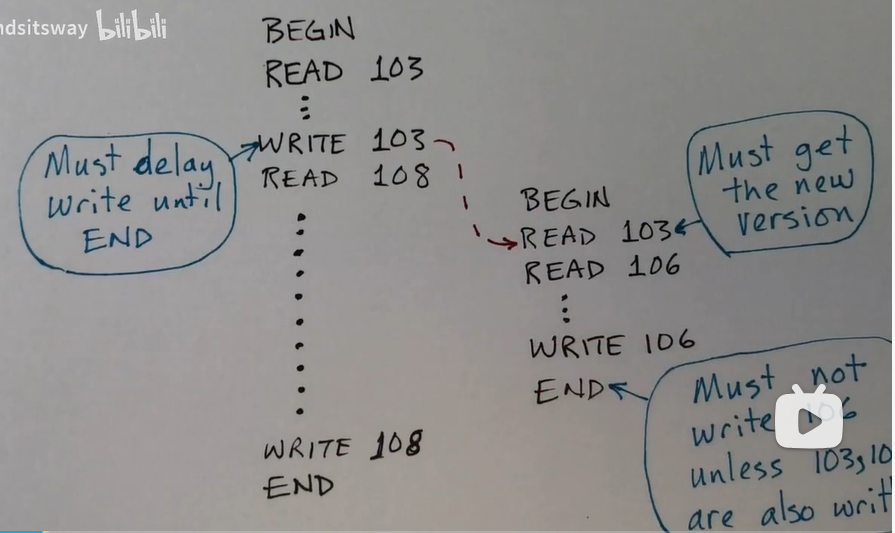 ndsitsway bilibili
BEGIN
READ 103
WRITE 103
READ 108
WRITE 108
END
Must delay
write until
END
BEGIN
READ 103
READ 106
WRITE 106
END
Must get
the new
version
Must not
write 106
unless 103, 10
are also writ